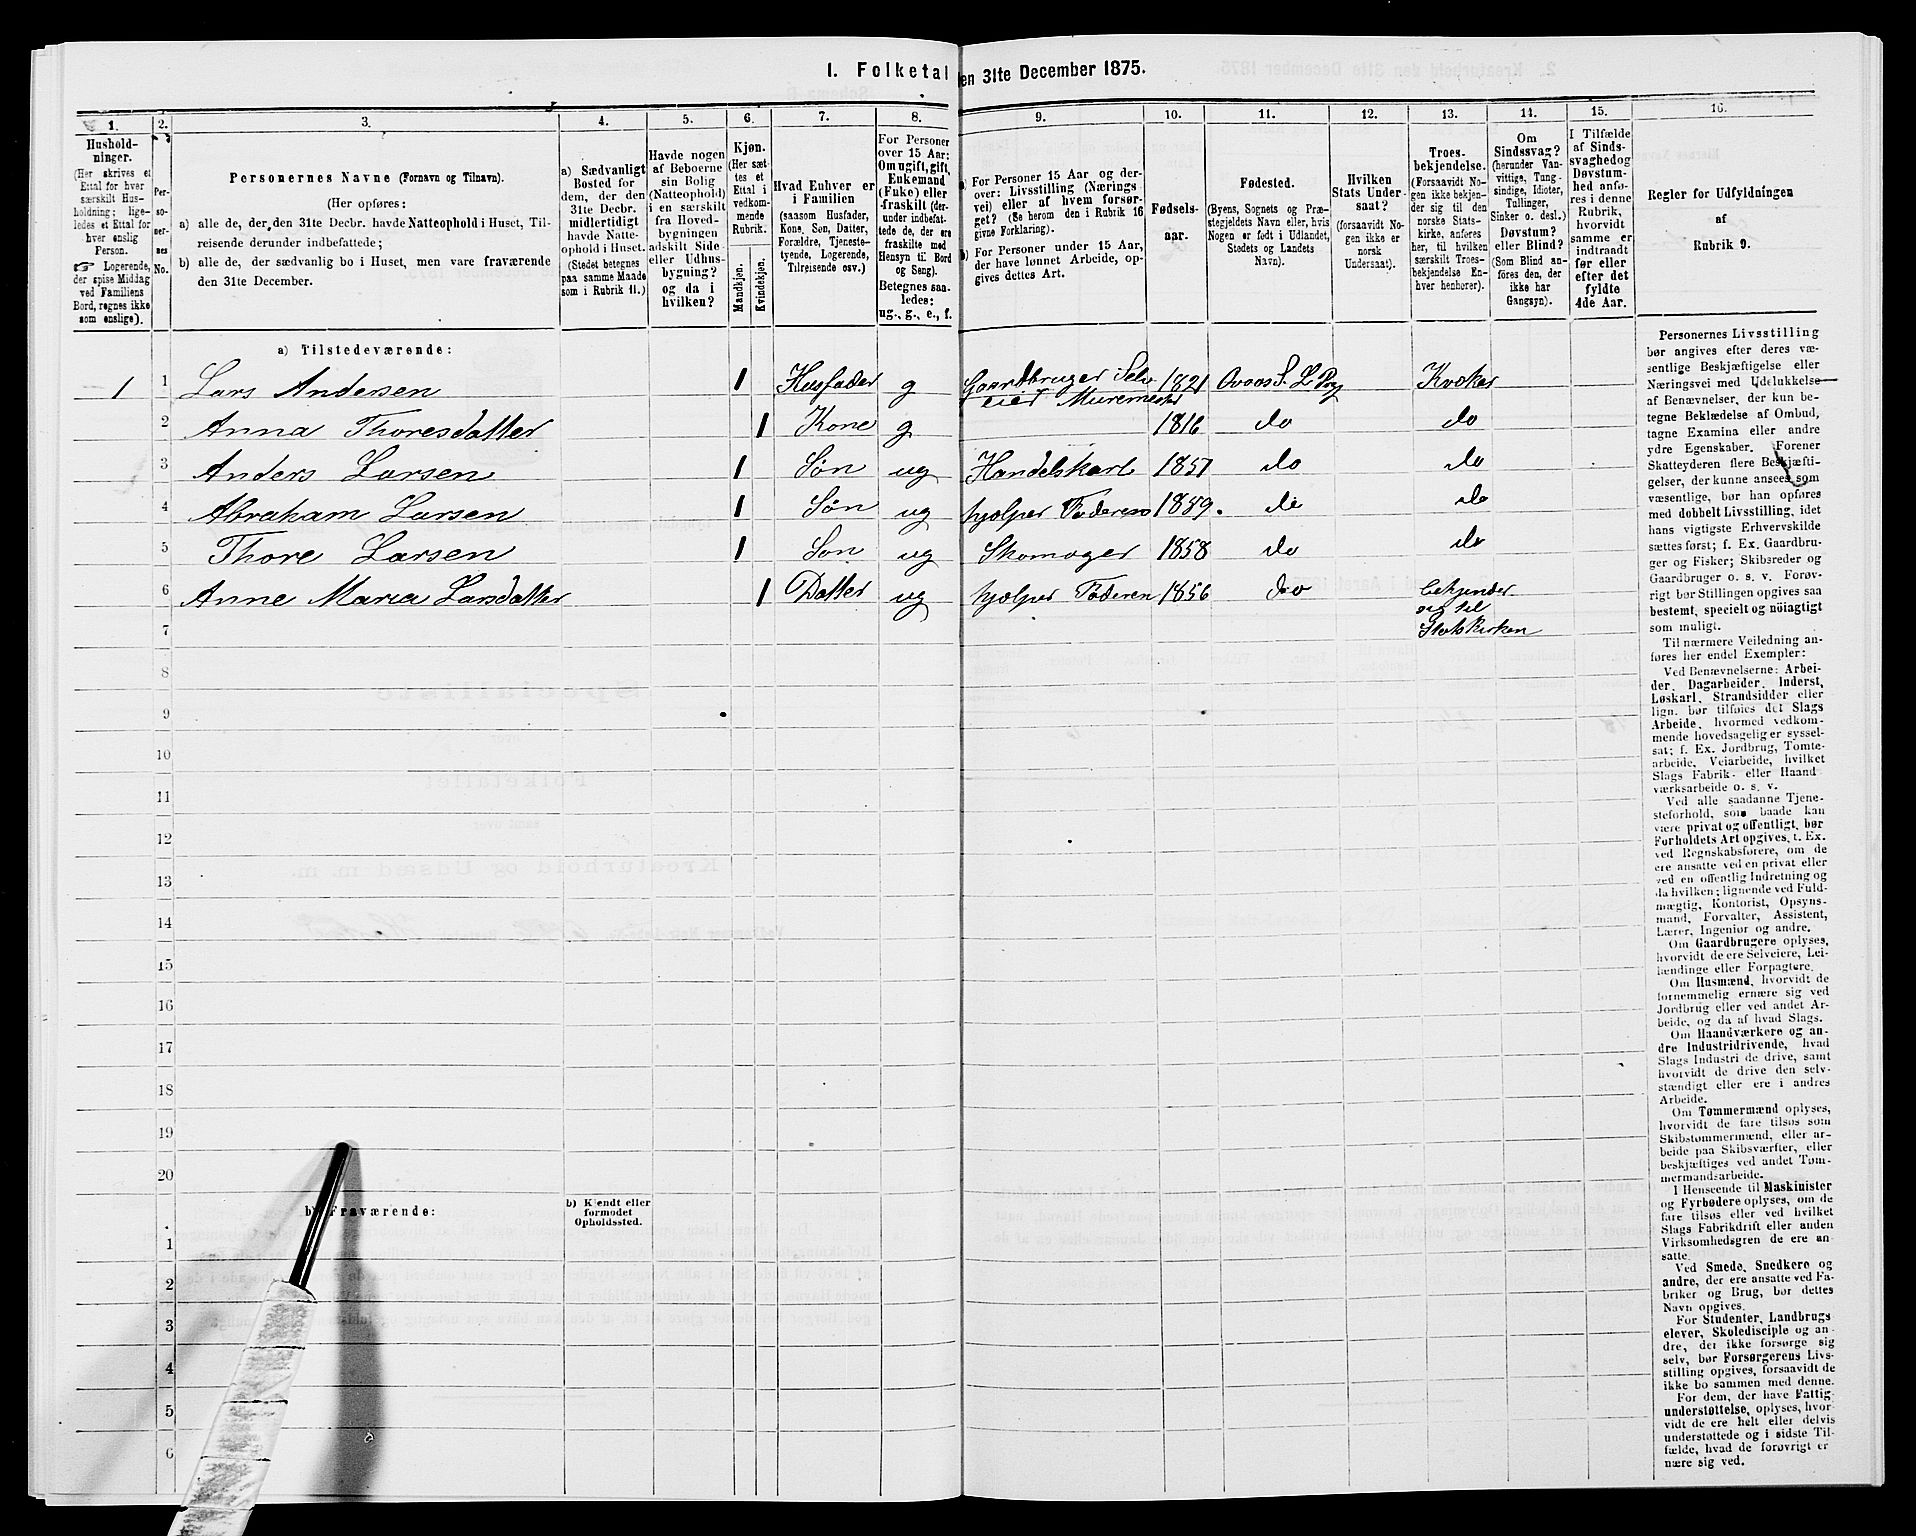 I. Folketal den 31te December 1875.
1.
Hushold-
ninger.
(Her skrives et
Ettal for hver
særskilt Hus-
holdning; lige-
ledes et Ettal for
hver enslig
Person.
☞ Logerende,
der spise Middag
ved Familiens
Bord, regnes ikke
som enslige).
2.
Per-
so-
ner-
nes
No.
3.
Personernes Navne (Fornavn og Tilnavn).
(Her opføres:
a) alle de, der den 31te Decbr. havde Natteophold i Huset, Til-
reisende derunder indbefattede;
b) alle de, der sædvanlig bo i Huset, men vare fraværende
den 31te December.
4.
a) Sædvanligt
Bosted for
dem, der den
31te Decbr.
midlertidigt
havde Natte-
ophold i Huset.
(Stedet betegnes
paa samme Maade
som i Rubrik 11.)
5.
Havde nogen
af Beboerne
sin Bolig
(Natteophold)
i en særskilt
fra Hoved-
bygningen
adskilt Side-
eller Udhus-
bygning?
og da i
hvilken?
6.
Kjøn.
(Her sæt-
tes et
Ettal i
vedkom-
mende
Rubrik.
Mandkjøn.
Kvindekjøn.
7.
Hvad Enhver er
i Familien
(saasom Husfader,
Kone, Søn, Datter,
Forældre, Tjeneste-
tyende, Logerende,
Tilreisende osv.)
8.
For Personer
over 15 Aar:
Om ugift, gift,
Enkemand
(Fuke) eller
fraskilt (der-
under indbefat-
tede de, der ere
fraskilte med
Hensyn til Bord
og Seng).
Betegnes saa-
ledes:
ug., g., e., f.
9.
a) For Personer 15 Aar og der-
over: Livsstilling (Nærings-
vei) eller af hvem forsør-
get? (Se herom den i Rubrik 16
givne Forklaring).
b) For Personer under 15 Aar,
der have lønnet Arbeide, op-
gives dettes Art.
10.
Fødsels-
aar.
11.
Fødested.
(Byens, Sognets og Præ-
stegjeldets Navn eller, hvis
Nogen er født i Udlandet,
Stedets og Landets
Navn).
12.
Hvilken
Stats Under-
saat?
(forsaavidt No-
gen ikke er
norsk
Undersaat).
13.
Troes-
bekjendelse.
(Forsaavidt No-
gen ikke bekjen-
der sig til den
norske Stats-
kirke, anføres
her, til hvilken
særskilt Troes-
bekjendelse En-
hver henhører).
14.
Om
Sindssvag?
(herunder Van-
vittige, Tung-
sindige, Idioter,
Tullinger,
Sinker o. desl.)
Døvstum?
eller Blind?
(Som Blind an-
føres den, der
ikke har
Gangsyn).
15.
I Tilfælde
af Sinds-
svaghed og
Døvstum-
hed anfø-
res i denne
Rubrik,
hvorvidt
samme er
indtraadt
før eller
efter det
fyldte
4de Aar.
16.
Regler for Udfyldningen
af
Rubrik 9.
a) Tilstedeværende:
1 1 Lars Andersen 1 Husfader g Gaardbruger Selv 1821 Kvæker
eier Muremester
2 Anna Thoresdatter 1 Kone g 1816 do do
3 Anders Larsen 1 Søn ug Handelskarl 1851 do do
4 Abraham Larsen 1 Søn ug hjælper Faderen 1859. do do
5 Thore Larsen 1 Søn ug Skomager 1858 do do
6 Anne Maria Larsdatter 1 Datter ug hjælper Faderen 1856 do bekjender
sig til
7 Statskirken
8
9
10
11
12
13
14
15
16
17
18
19
20
b) Fraværende:
b) Kjendt eller
formodet
Opholdssted.
1
2
3
4
5
6
Personernes Livsstilling
bør angives efter deres væ-
sentlige Beskjæftigelse eller
Næringsvei med Udelukkelse
af Benævnelser, der kun be-
tegne Beklædelse af Ombud,
tagne Examina eller andre
ydre Egenskaber. Forener
Skatteyderen flere Beskjæfti-
gelser, der kunne ansees som
væsentlige, bør han opføres
med dobbelt Livsstilling, idet
hans vigtigste Erhvervskilde
sættes først; f. Ex. Gaardbru-
ger og Fisker; Skibsreder og
Gaardbruger o. s. v. Forøv-
rigt bør Stillingen opgives saa
bestemt, specielt og nöiagtigt
som muligt.
Til nærmere Veiledning an-
føres her endel Exempler:
Ved Benævnelserne: Arbei-
der, Dagarbeider, Inderst,
Løskarl, Strandsidder eller
lign. bør tilføies det Slags
Arbeide, hvormed vedkom-
mende hovedsagelig er syssel-
sat; f. Ex. Jordbrug, Tomte-
arbeide, Veiarbeide, hvilket
Slags Fabrik- eller Haand-
værksarbeide o. s. v.
Ved alle saadanne Tjene-
steforhold, som baade kan
være privat og offentligt, bør
Forholdets Art opgives, t. Ex.
ved Regnskabsførere, om de
ere ansatte ved en privat eller
ved en offentlig Indretning og
da hvilken; lignende ved Fuld-
mægtig, Kontorist, Opsyns-
mand, Forvalter, Assistent,
Lærer, Ingeniør og andre.
Om Gaardbrugere oplyses,
hvorvidt de ere Selveiere, Lei-
lændinge eller Forpagtere.
Om Husmænd, hvorvidt de
fornemmelig ernære sig ved
Jordbrug eller ved andet Ar-
beide, og da af hvad Slags.
Om Haandværkere og an-
dre Industridrivende, hvad
Slags Industri de drive, samt
hvorvidt de drive den selv-
stændigt eller ere i andres
Arbeide.
Om Tømmermænd oplyses,
hvorvidt de fare tilsøs som
Skibstømmermænd, eller ar-
beide paa Skibsværfter, eller
beskjæftiges ved andet Tøm-
mermandsarbeide.
I Henseende til Maskinister
og Fyrbødere oplyses, om de
fare tilsøs eller ved hvilket
Slags Fabrikdrift eller anden
Virksomhedsgren de ere an-
satte.
Ved Smede, Snedkere og
andre, der ere ansatte ved Fa-
briker og Brug, bør dettes
Navn opgives.
For Studenter, Landbrugs-
elever, Skoledisciple og an-
dre, der ikke forsørge sig
selv, bør Forsørgerens Livs-
stilling opgives, forsaavidt de
ikke bo sammen med denne.
For dem, der have Fattig-
understøttelse, oplyses, hvor-
vidt de ere helt eller delvis
understøttede og i sidste Til-
fælde, hvad de forøvrigt er-
nære sig ved.